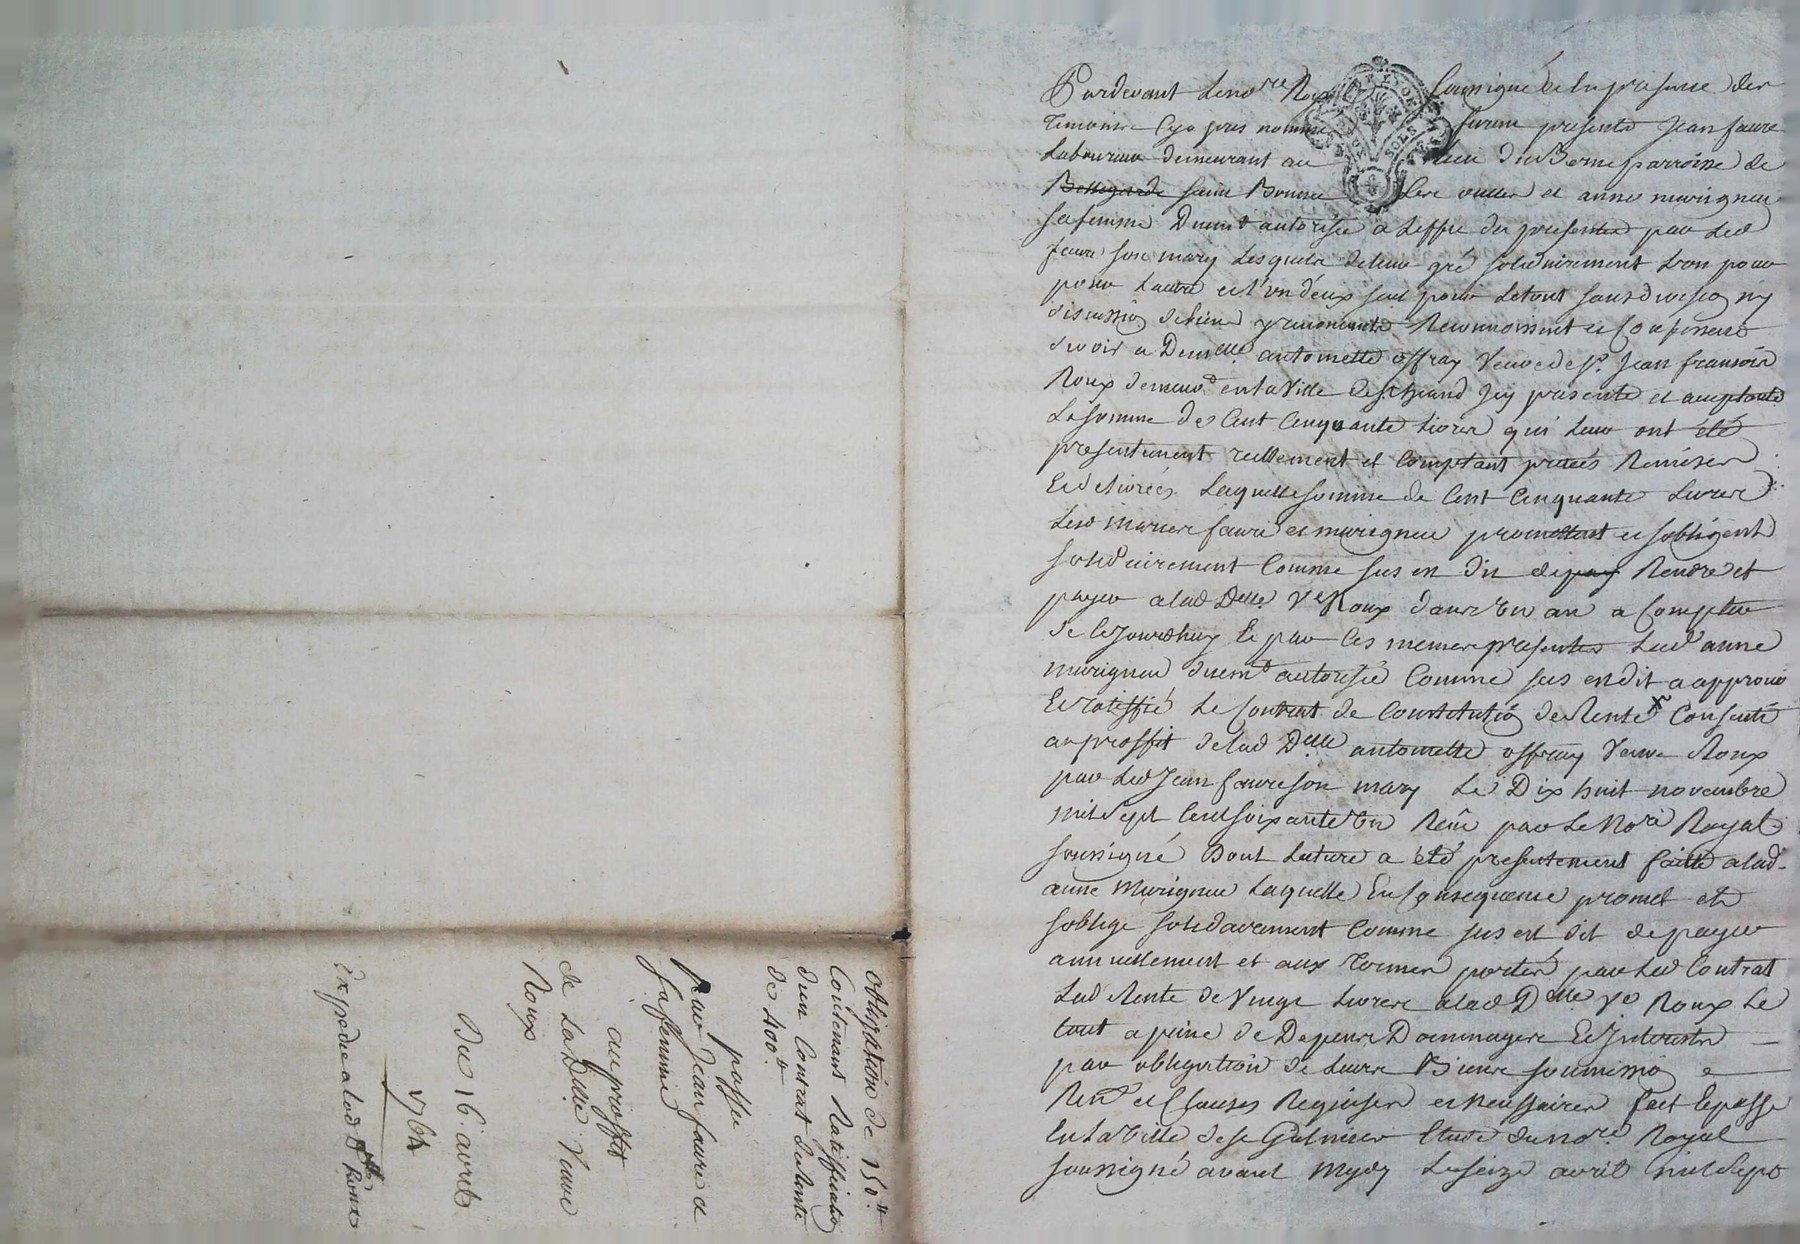 Pardevant Le no.re Royal Soussigné et la presence des
Temoins Cy apres nommés furent presents Jean faure
Laboureur demeurant au lieu du Berne parroisse de
Bellegarde saint Bonnet Les oulles et anne marigneu
sa femme Duem.t autorisée a Leffet des presentes par Led
faure son mary Lesquels de leur gré solidairement L'on pour
pour Lautre et l'un d'eux seul pour Le tout sans divisiog ny
discussiog de biens y renoncants Reconnoissent et Confessent
devoir a Demlle antoinette offray Veuve de Sr. Jean francois
Roux demeur.t en la Ville de St. Icy presente et acceptante
La somme de Cent Cinquante Livres qui Leur ont été
presentement reellement et Comptant pretées Remises
Et delivrées Laquelle somme de Cent Cinquante Livres
Lesd Mariés faure et marigneu promettent et sobligent
solidairement Comme sus en dit de pay Rendre et
payer a lad Dlle. Ve Roux dans Un an a Compter
de Cejourdhuy Et par Ces memes presentes Lad anne
marigneu duem.t autorisée Comme sus en dit a approuvé
Et ratiffié Le Contrat de Constitutiog de Rente Consenti
au proffit de lad Dlle antoinette offray Veuve Roux
par Led Jean faure son mary Le Dix huit novembre
mil sept Cent soixante Un Reçu par Le No.re Royal
soussigné Dont Lecture a été presentement faitte a lad.
anne Marigneu Laquelle En Consequence promet et
soblige solidairement Comme sus est dit de payer
annuellement et aux Termes portés par Led Contrat
Lad Rente de Vingt Livres a lad Dlle Ve Roux Le
tout a peine de Depens Dommages Et Interests
par obligation de Leurs Biens soumissiog
Ren.on et Clauses Requises et Necessaires fait et passé
En La Ville de St Galmier Etude du no.re Royal
soussigné avant Mydy Le seize avril mil sept
obligation de 150.#
Contenant Ratifficatiog
dun Contrat de Rente
de 400.#
passée
par Jean faure et
sa femme
au proffit
de La Dlle Veuve
Roux
Du 16. avril
1764
Expedié a lad Dlle